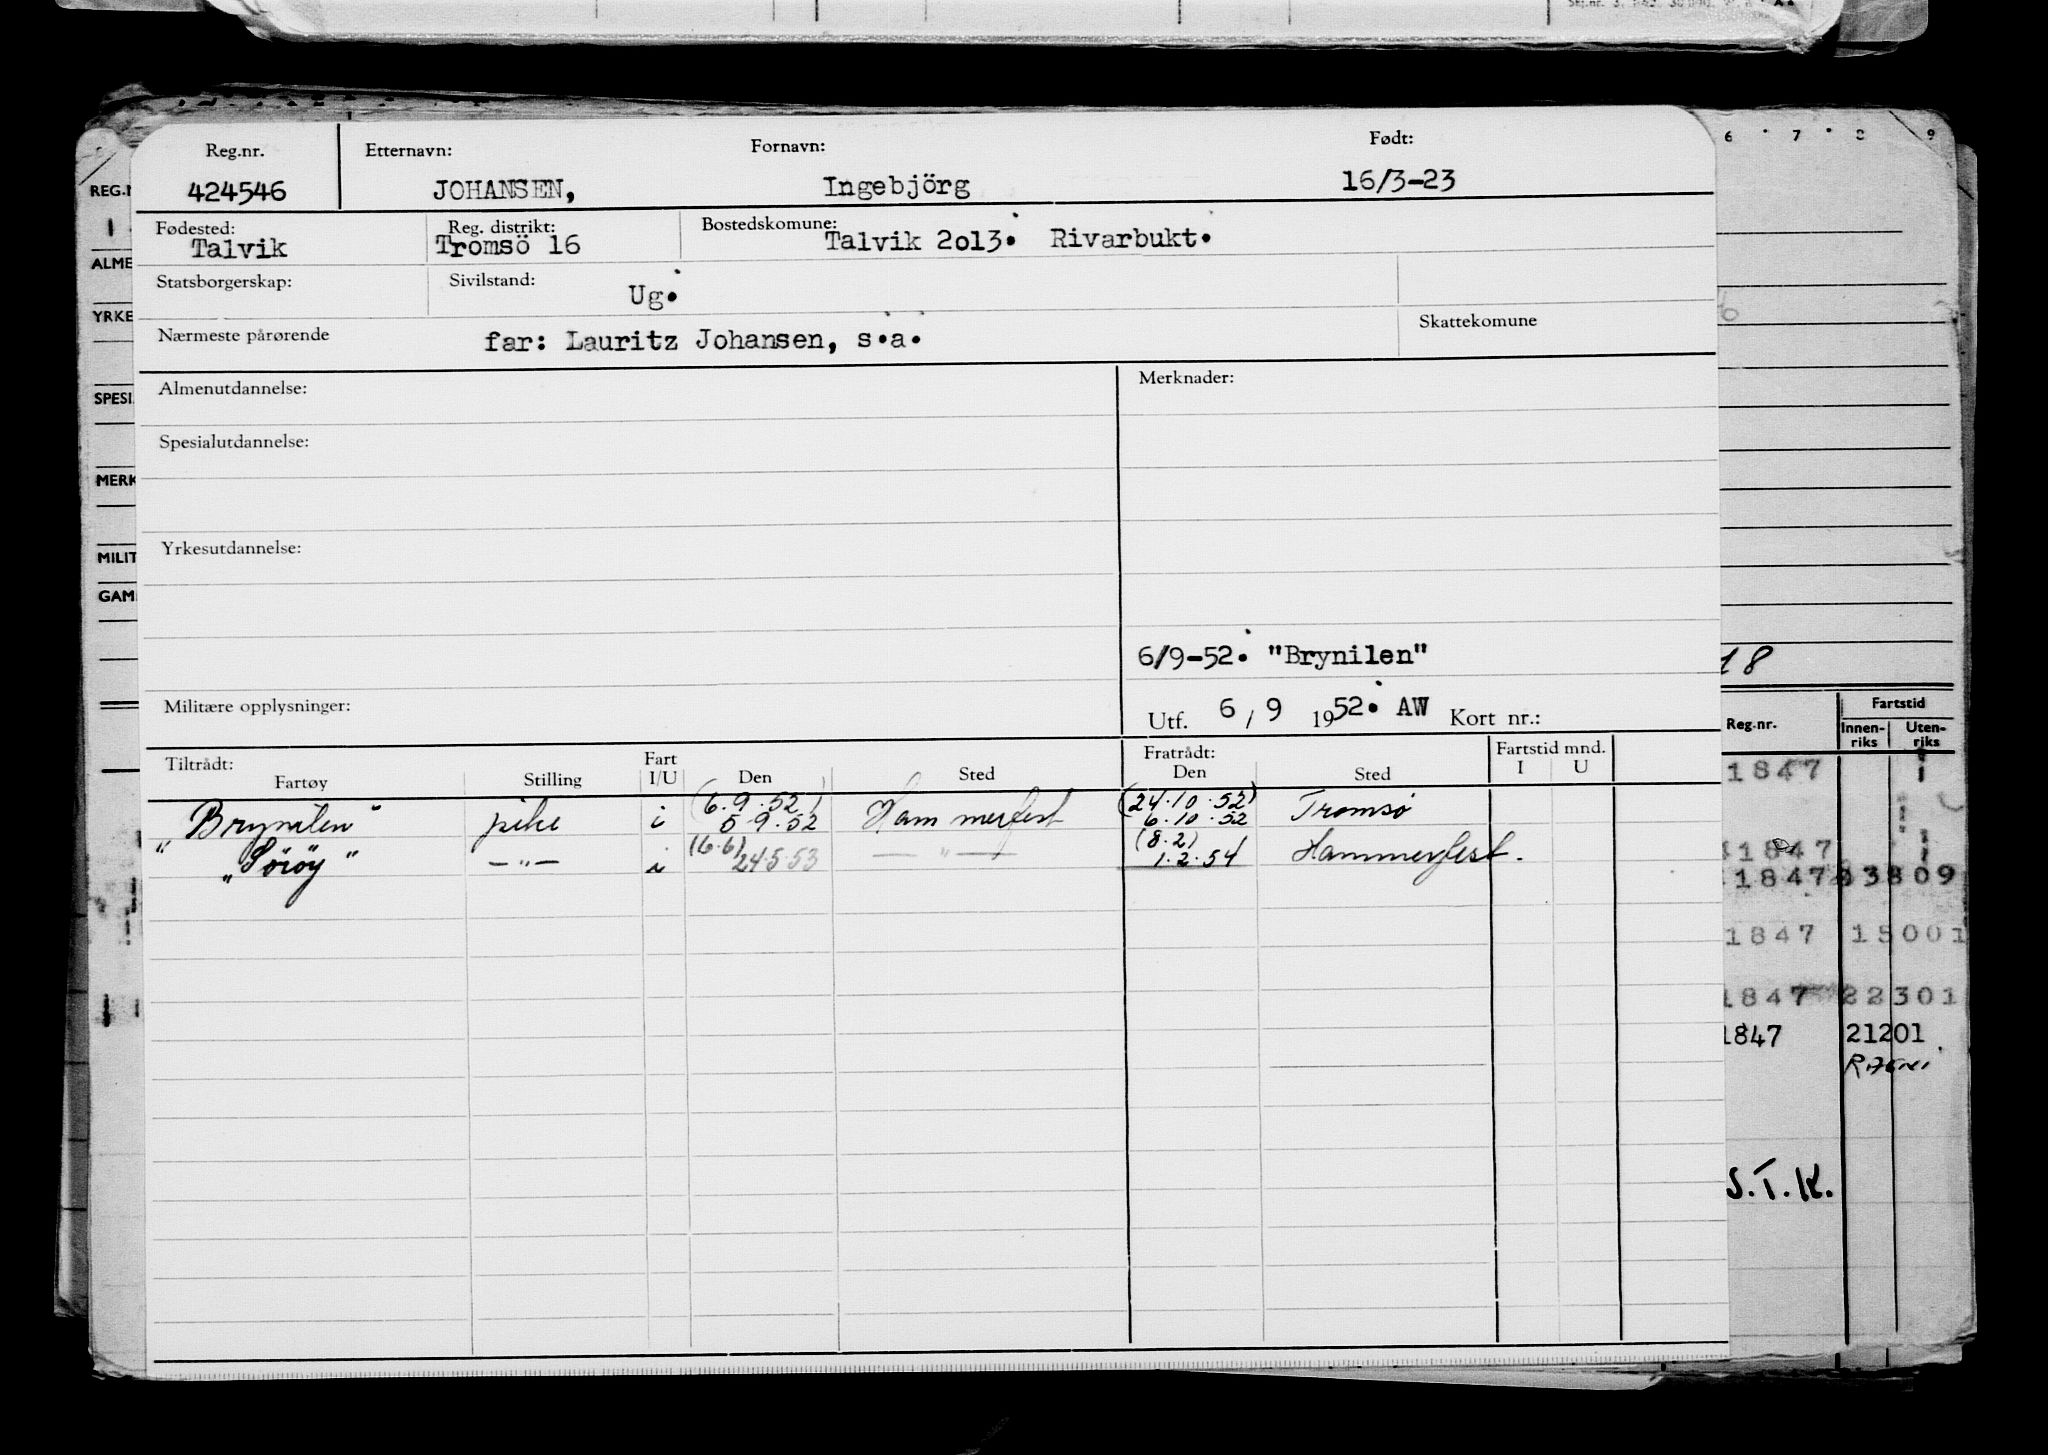 Skj.nr. 3.
6 7 8 9
Reg.nr. Etternavn: Fornavn: Født:
424546 JOHANSEN, Ingebjörg 16/3-23
Fødested: Reg. distrikt: Bostedskomune:
Talvik Tromsö 16 Talvik 2o13. Rivarbukt.
Statsborgerskap: Sivilstand: Ug.
Nærmeste pårørende far: Lauritz Johansen, s.a. Skattekomune
Almenutdannelse: Merknader:
Spesialutdannelse:
Yrkesutdannelse:
6/9-52. "Brynilen"
Militære opplysninger: Utf. 6 / 9 1952. AW Kort nr.:
Tiltrådt: Fart Fratrådt: Fartstid mnd.
Fartøy Stilling I/U Den Sted Den Sted I U
(6.9.52) (24.10.52)
"Brynilen" pike i 5.9.52 Hammerfest 6.10.52 Tromsø
(6.6) (8.2)
"Sörøy" —"— i 24.5.53 —"— 1.2.54 Hammerfest.
REG.N
ALME
YRKE
SPESI
MERK
MILIT
GAM
18
Fartstid
Reg.nr. Innen-riks Uten-riks
1847
1847
1847 3809
1847 15001
1847 22301
1847 21201
S.T.K.